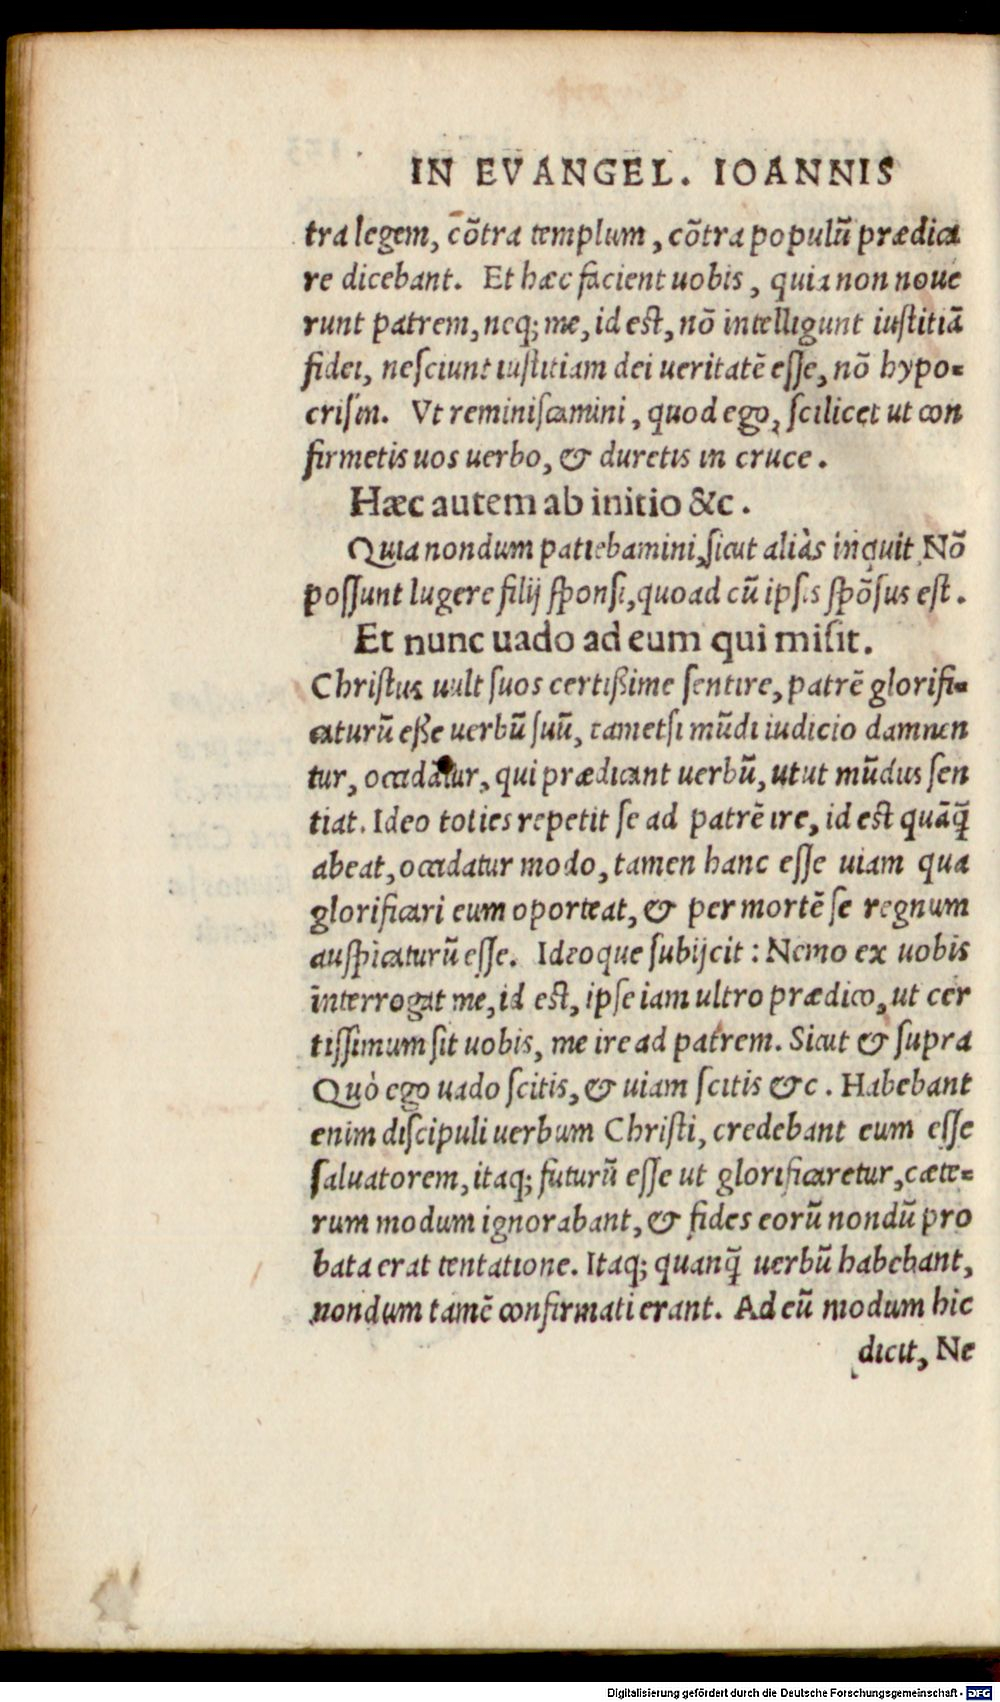 IN EVANGEL. IOANNIS
tra legem, cõtra templum, cõtra populũ prædica
re dicebant. Et hæc facient uobis, quia non noue
runt patrem, neq; me, id est, nõ intelligunt iustitiã
fidei, nesciunt iustitiam dei ueritatẽ esse, nõ hypo=
crisin. Vt reminiscamini, quod ego, scilicet ut con
firmetis uos uerbo, & duretis in cruce.
Hæc autem ab initio &c.
Quia nondum patiebamini, sicut aliàs inquit Nõ
possunt lugere filij sponsi, quoad cũ ipsis spõsus est.
Et nunc uado ad eum qui misit.
Christus uult suos certißime sentire, patrẽ glorifi=
caturũ eße uerbũ suũ, tametsi mũdi iudicio damnen
tur, occidãtur, qui prædicant uerbũ, utut mũdus sen
tiat. Ideo toties repetit se ad patrẽ ire, id est quãq̃
abeat, occidatur modo, tamen hanc esse uiam qua
glorificari eum oporteat, & per mortẽ se regnum
auspicaturũ esse. Ideoque subijcit: Nemo ex uobis
interrogat me, id est, ipse iam ultro prædico, ut cer
tissimum sit uobis, me ire ad patrem. Sicut & supra
Quò ego uado scitis, & uiam scitis &c. Habebant
enim discipuli uerbum Christi, credebant eum esse
saluatorem, itaq; futurũ esse ut glorificaretur, cæte=
rum modum ignorabant, & fides eorũ nondũ pro
bata erat tentatione. Itaq; quanq̃ uerbũ habebant,
nondum tamẽ confirmati erant. Ad eũ modum hic
dicit, Ne
Digitalisierung gefördert durch die Deutsche Forschungsgemeinschaft - DFG